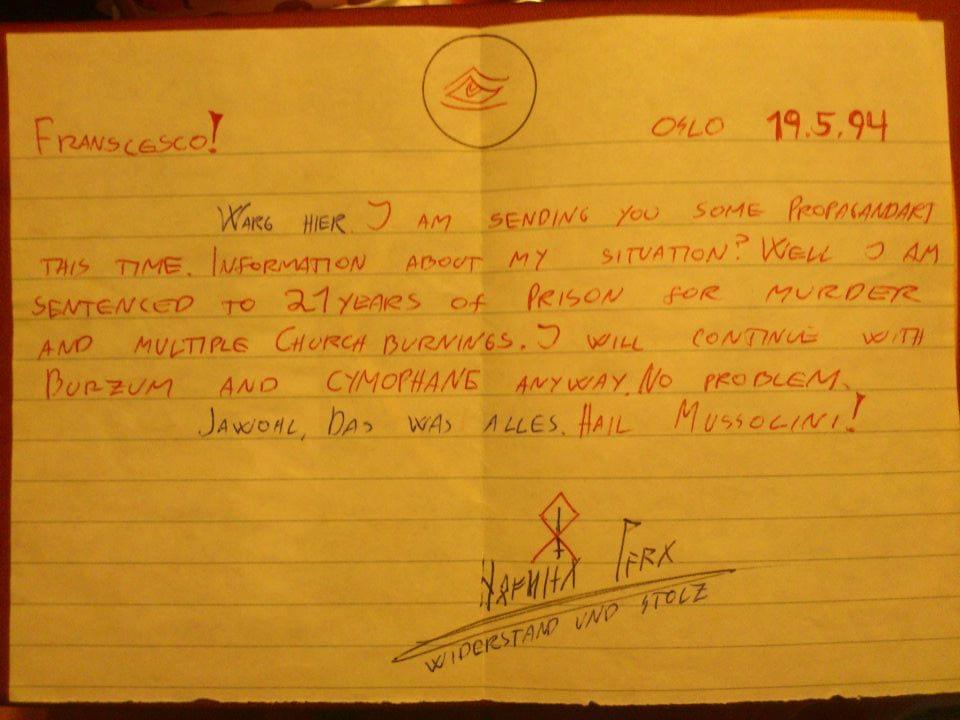 FRANSCESCO!
OSLO 19.5.94
WARG HIER. I AM SENDING YOU SOME PROPAGANDART
THIS TIME. INFORMATION ABOUT MY SITUATION? WELL I AM
SENTENCED TO 21 YEARS OF PRISON FOR MURDER
AND MULTIPLE CHURCH BURNINGS. I WILL CONTINUE WITH
BURZUM AND CYMOPHANE ANYWAY. NO PROBLEM.
JAWOHL, DAS WAS ALLES. HAIL MUSSOLINI!
WIDERSTAND UND STOLZ